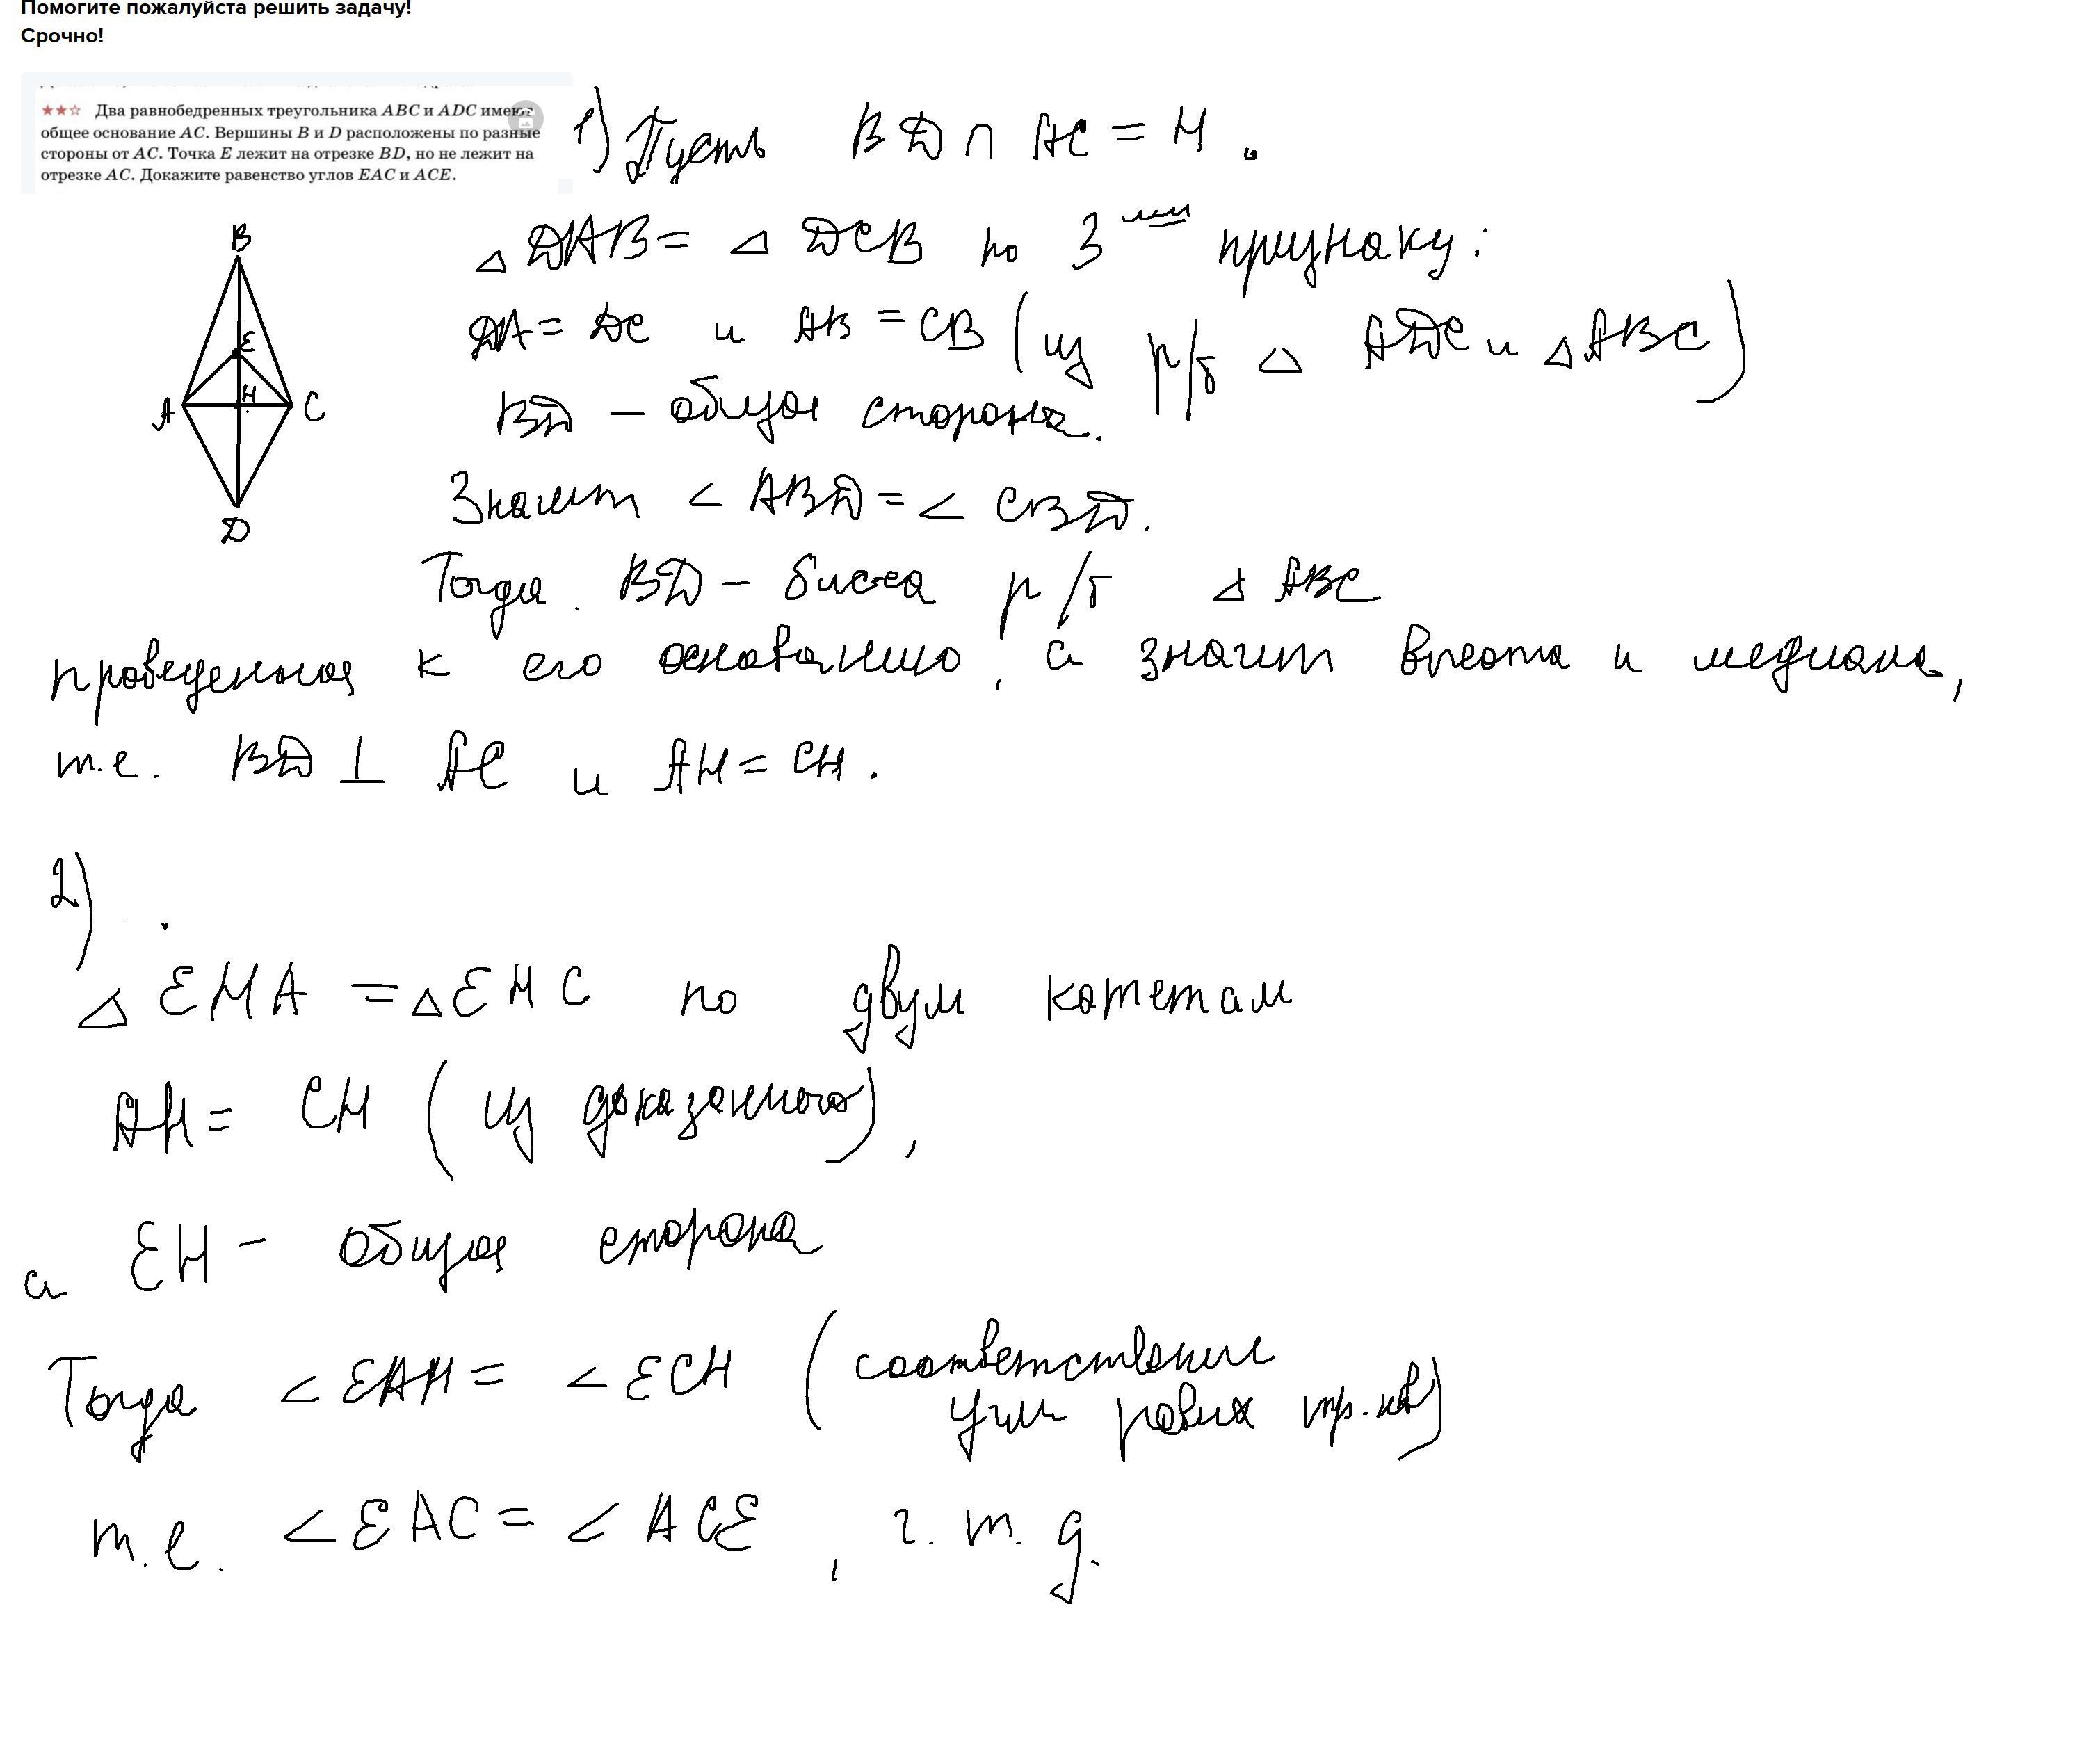 Помогите пожалуйста решить задачу!
Срочно!
★★☆ Два равнобедренных треугольника ABC и ADC имеют
общее основание AC. Вершины B и D расположены по разные
стороны от AC. Точка E лежит на отрезке BD, но не лежит на
отрезке AC. Докажите равенство углов EAC и ACE.
1) Пусть BD ∩ AC = H.
△ DAB = △ DCB по 3 признаку:
DA = DC и AB = CB (из р/б △ ADC и △ ABC)
BD – общая сторона.
Значит ∠ ABD = ∠ CBD.
Тогда BD – бисс-са р/б △ ABC
проведенная к его основанию, а значит высота и медиана,
т.е. BD ⊥ AC и AH = CH.
B
E
A
H
C
D
2)
△ EHA = △ EHC по двум катетам
AH = CH (из доказанного),
а EH – общая сторона
Тогда ∠ EAH = ∠ ECH (соответствении
углы равных тр-ков)
т.е. ∠ EAC = ∠ ACE, ч.т.д.